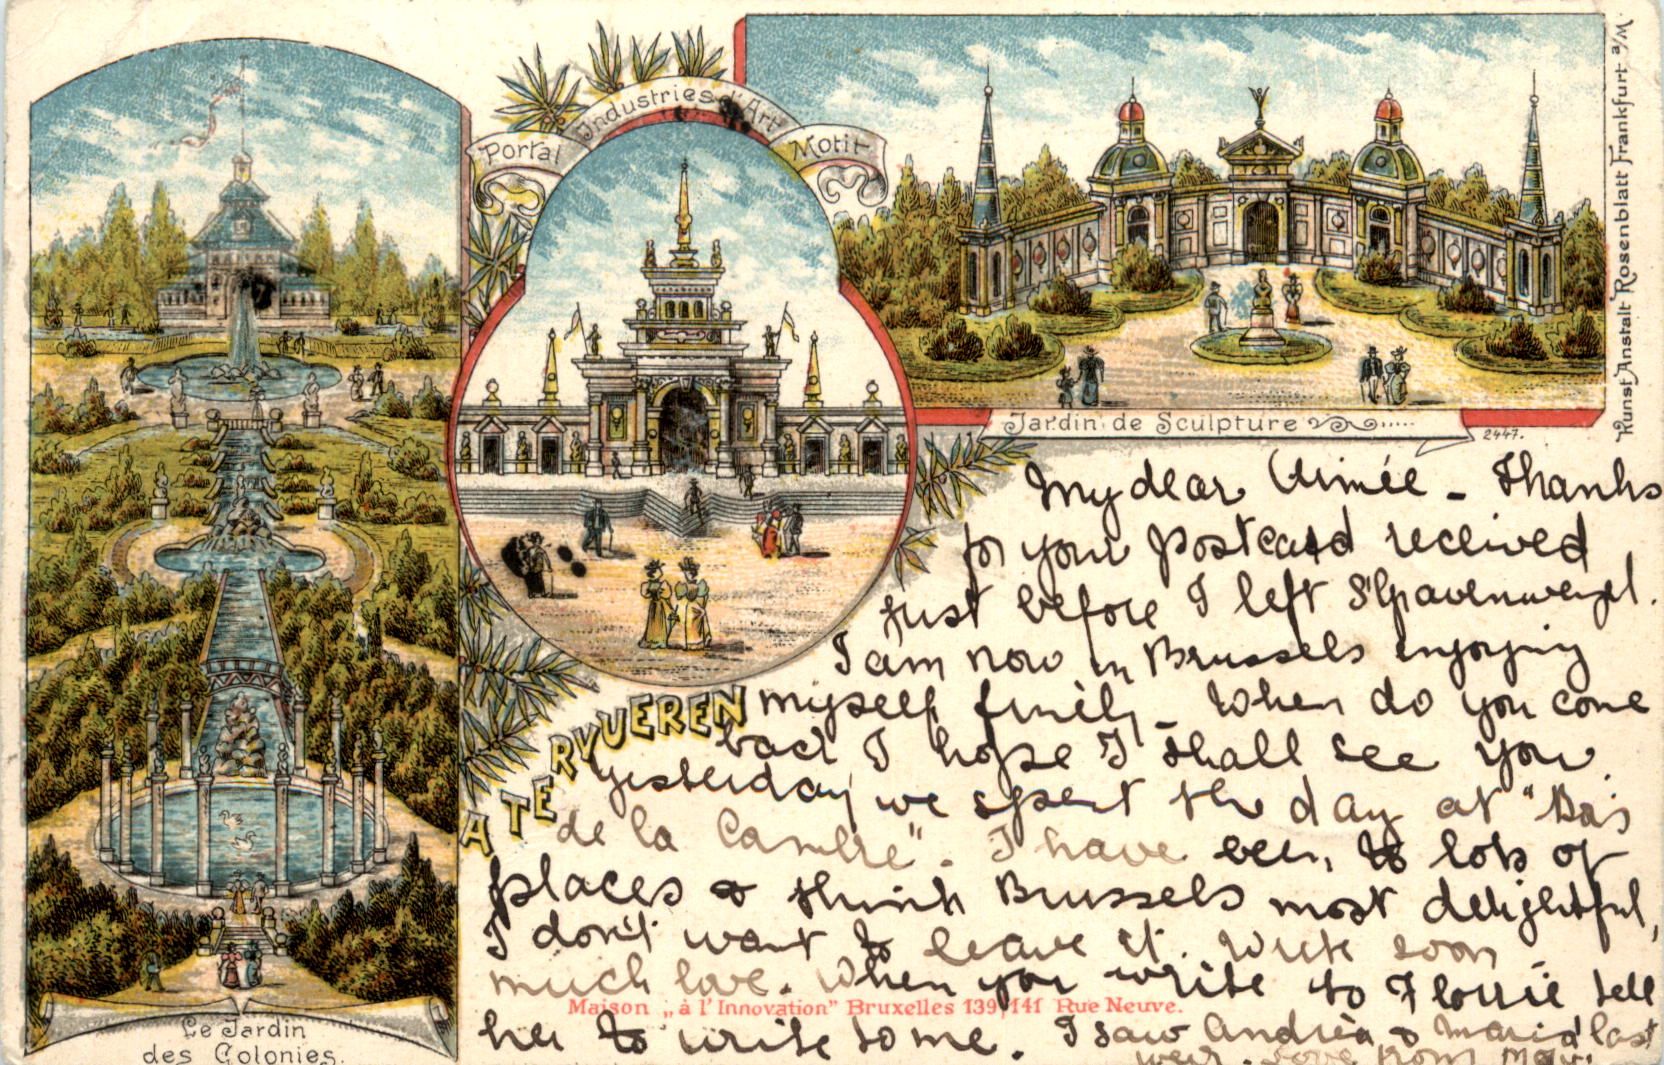 Portal Industries d'Art Motif
Kunst Anstalt Rosenblatt Frankfurt a/M.
Jardin de Sculpture
2447.
A TERVUEREN
Le Jardin
des Colonies.
My dear Aimée - Thanks
for your Postcard received
just before I left S'Gravenwezel.
I am now in Brussels enjoying
myself finely - When do you come
back I hope I shall see you.
Yesterday we spent the day at "Bois
de la Cambre". I have been to lots of
places & think Brussels most delightful,
I don't want to leave it. Write soon
much love. When you write to Florrie tell
Maison „à l'Innovation" Bruxelles 139,141 Rue Neuve.
her to write to me. I saw Andréa & Maria last
week. Love from May.